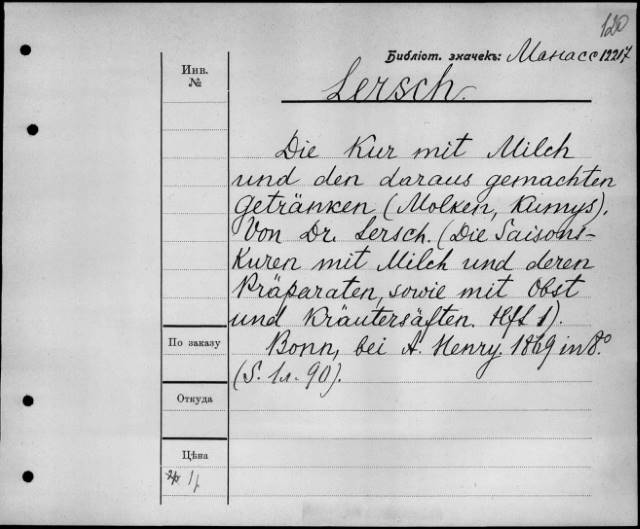 120
Библіот. значекъ: Манасс 12217
Инв.
№
Lersch.
Die Kur mit Milch
und den daraus gemachten
getränken (Molken, Kumys).
Von Dr. Lersch. (Die Saisons-
Kuren mit Milch und deren
Präparaten, sowie mit Obst
und Kräutersäften. Hft 1).
Bonn, bei A. Henry. 1869 in 8.º
(S. 1л. 90).
По заказу
Откуда
Цѣна